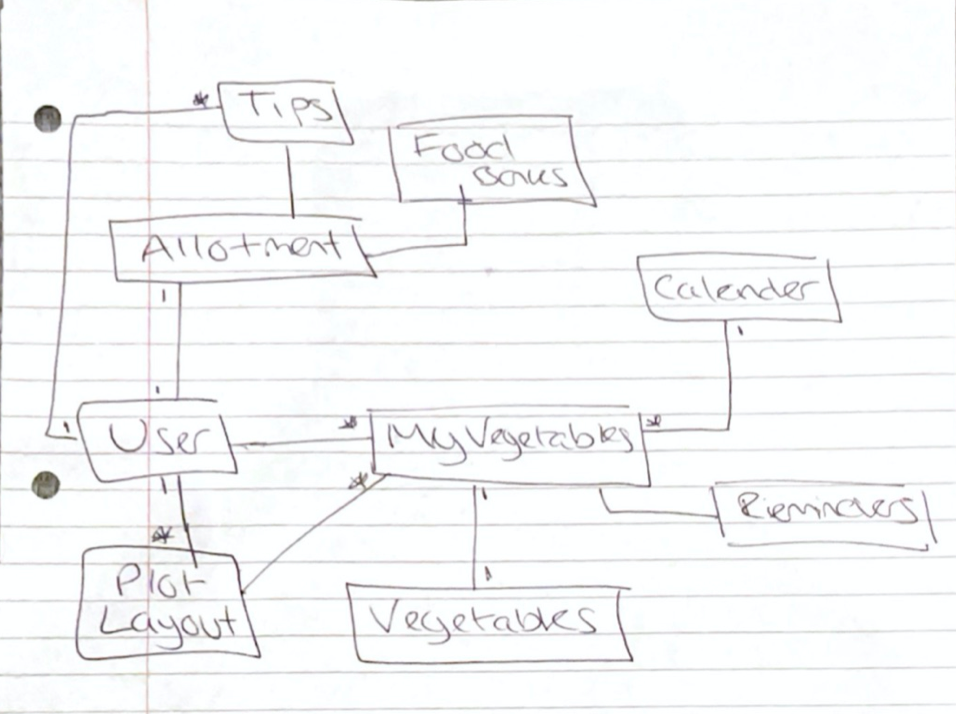 * Tips
Food
Allotment
1
Calender
1
1
1 User
* MyVegetables *
1
*
1
Reminders
*
1
Plot
Layout
Vegetables